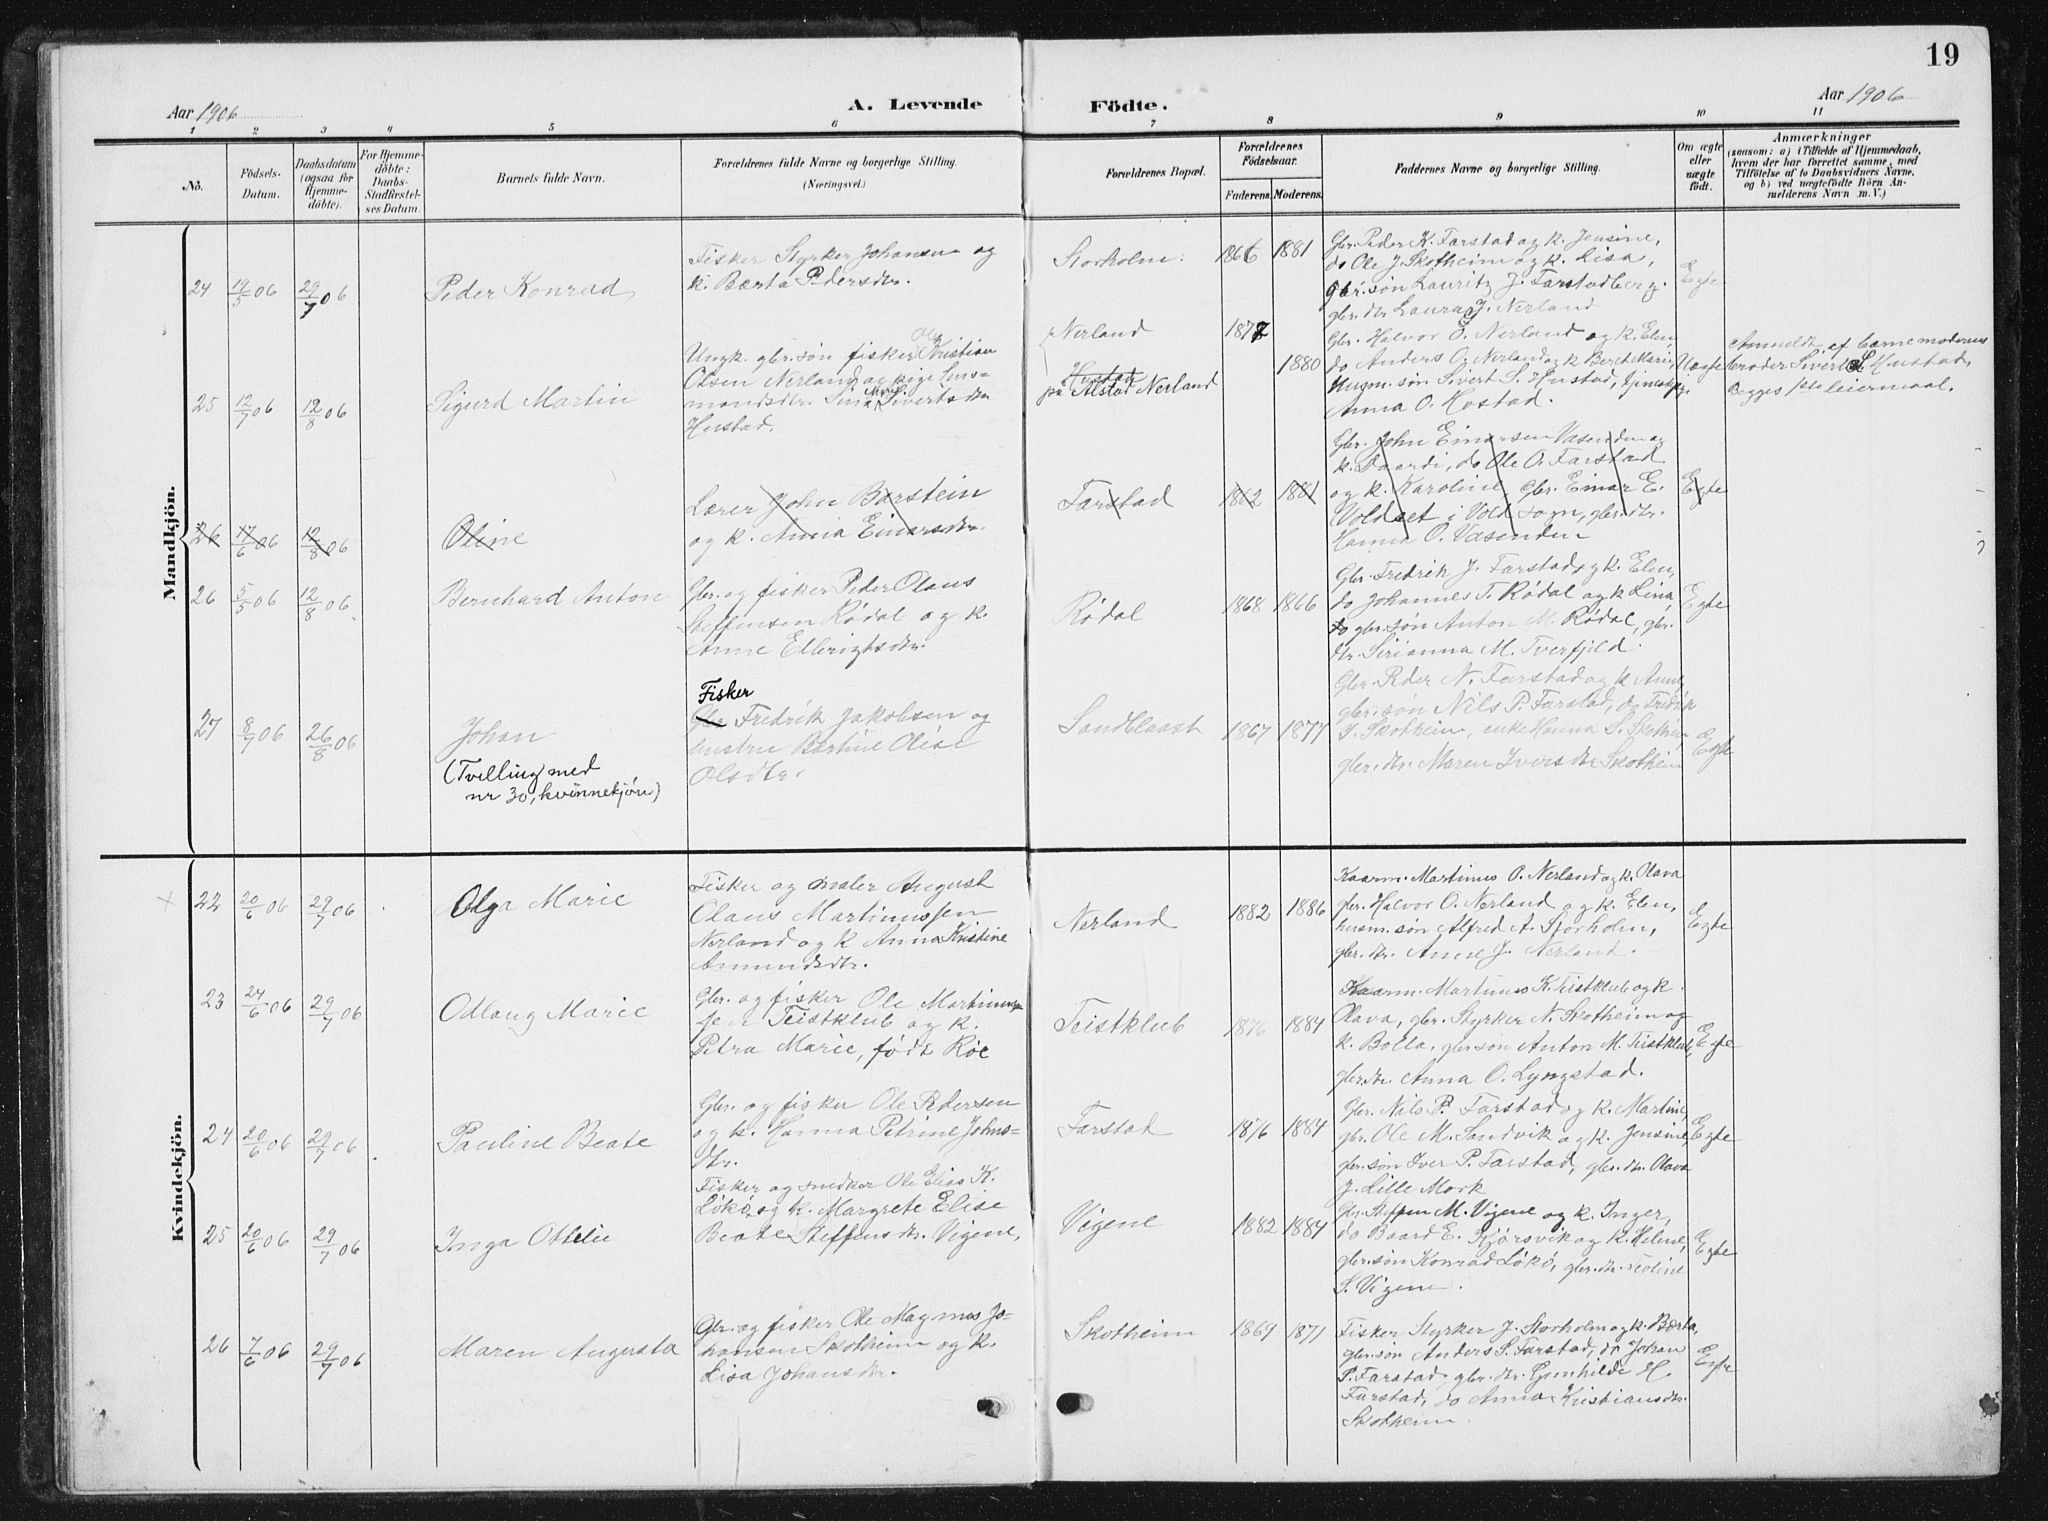 19
Aar 1906
A. Levende
Födte.
Aar 1906
1 2 3 4 5 6 7 8 9 10 11
No.
Födsels-
Datum.
Daabsdatum
(ogsaa for
Hjemme-
döbte).
For Hjemme-
döbte:
Daabs-
Stadfæstel-
ses Datum.
Barnets fulde Navn.
Forældrenes fulde Navne og borgerlige Stilling.
(Næringsvei.)
Forældrenes Bopæl.
Forældrenes
Födselsaar.
Faderens.
Moderens.
Faddernes Navne og borgerlige Stilling.
Om ægte
eller
uægte
födt.
Anmærkninger
(saasom: a) i Tilfælde af Hjemmedaab,
hvem der har forrettet samme, med
Tilföielse af to Daabsvidners Navne,
og b) ved uægtefödte Börn An-
melderens Navn m. V.)
Mandkjön.
24
19/5 06
29/7 06
Peder Konrad
Fisker Styrker Johansen og
k. Bærta Pedersdtr.
Storholm
1866
1881
Gbr. Peder K. Farstad og k. Jensine,
do Ole J. Skotheim og k. Lisa,
gbr. søn Lauritz J. Farstadberg.
gbr. dtr. Laura J. Nerland
Egte
25
12/7 06
12/8 06
Sigurd Martin
Ungk. gbr. søn fisker Ole Kristian
Olsen Nerland og pige Lars-
mandsdtr. Sina Sivertsdtr
Hustad.
Nerland
Hustad
på Alstad Nerland
1877
1880
Gbr. Halvor O. Nerland og k. Elen,
do Anders O. Nerland og k Beret Marie,
Husm. søn Sivert S. Hustad, tjenestpg.
Anna O. Kostad.
Uægte
Anmeldt af barnemoderens
broder Sivert S Hustad.
Begges 1ste leiermaal.
26
17/6 06
12/8 06
Oline
Lærer John Barstein
og k. Anna Einarsdtr.
Farstad
1862
1881
Gbr. John Einarsen Vasenden og
k. Baardi, do Ole O. Farstad
og k. Karoline, gbr. Einar E.
Voldset i Vold sogn, gbr. dtr.
Hanna O. Vasenden
Egte
26
5/5 06
12/8 06
Bernhard Anton
Gbr. og fisker Peder Olaus
Steffensen Rødal og k.
Anne Ellingsdtr.
Rødal
1868
1866
Gbr. Fredrik J. Farstad og k. Elen,
do Johannes T. Rødal og k Lina,
do gbr. søn Anton M. Rødal, gbr.
dtr. Sirianna M. Tverfjeld.
Egte
27
8/7 06
26/8 06
Johan
(Tvelling med
nr 30, kvinnekjön)
Fisker
Gbr. Fredrik Jakobsen og
hustru Bertine Olise
Olsdtr.
Sandblaast
1867
1877
Gbr. Peder N. Farstad og k Anne,
gbr. søn Nils P. Farstad, do Fredrik
J. Skotheim, enke Hanna S. Skotheim
gbr. dtr. Maren Iversdtr Skotheim
Egte
Kvindekjön.
22
20/6 06
29/7 06
Olga Marie
Fisker og maler August
Olaus Martinussen
Nerland og k Anna Kristine
Amundsdtr.
Nerland
1882
1886
Kaarm. Martinus O. Nerland og k. Olava
gbr. Halvor O. Nerland og k. Elen,
husm. søn Alfred A. Storholm,
gbr. dtr. Anne J. Nerland.
Egte
23
24/6 06
29/7 06
Odlaug Marie
Gbr. og fisker Ole Martinus-
sen Teistklub og k.
Petra Marie, født Røe
Teistklub
1876
1884
Kaarm. Martinus K. Teistklub og k.
Olava, gbr. Styrker N. Skotheim og
k. Bolla, gbr søn Anton M. Teistklub,
gbr. dtr. Anna O. Lyngstad.
Egte
24
20/6 06
29/7 06
Pauline Beate
Gbr. og fisker Ole Pedersen
og k. Hanna Petrine Johns-
dtr.
Farstad
1876
1884
Gbr. Nils P. Farstad og k. Martine,
gbr. Ole M. Sandvik og k. Jensine,
gbr. søn Iver P. Farstad, gbr. dtr. Olava
J. Lille Mork
Egte
25
20/6 06
29/7 06
Inga Ottelie
Fisker og snedker Ole Elias K.
Løkø og k. Margrete Elise
Beate Steffensdtr. Vigene,
Vigene
1882
1884
Gbr. Steffen M. Vigene og k. Inger,
do Baard E. Kjørsvik og k. Helene,
gbr. søn Konrad Løkø, gbr. dtr. Teoline
S. Vigene.
Egte
26
7/6 06
29/7 06
Maren Augusta
Gbr. og fisker Ole Magnus Jo-
hansen Skotheim og k.
Lisa Johansdtr.
Skotheim
1869
1871
Fisker Styrker J. Storholm og k. Bærta,
gbr. søn Anders S. Farstad, do Johan
P. Farstad, gbr. dtr. Gunhilde H.
Farstad, do Anna Kristiansdtr.
Skotheim.
Egte